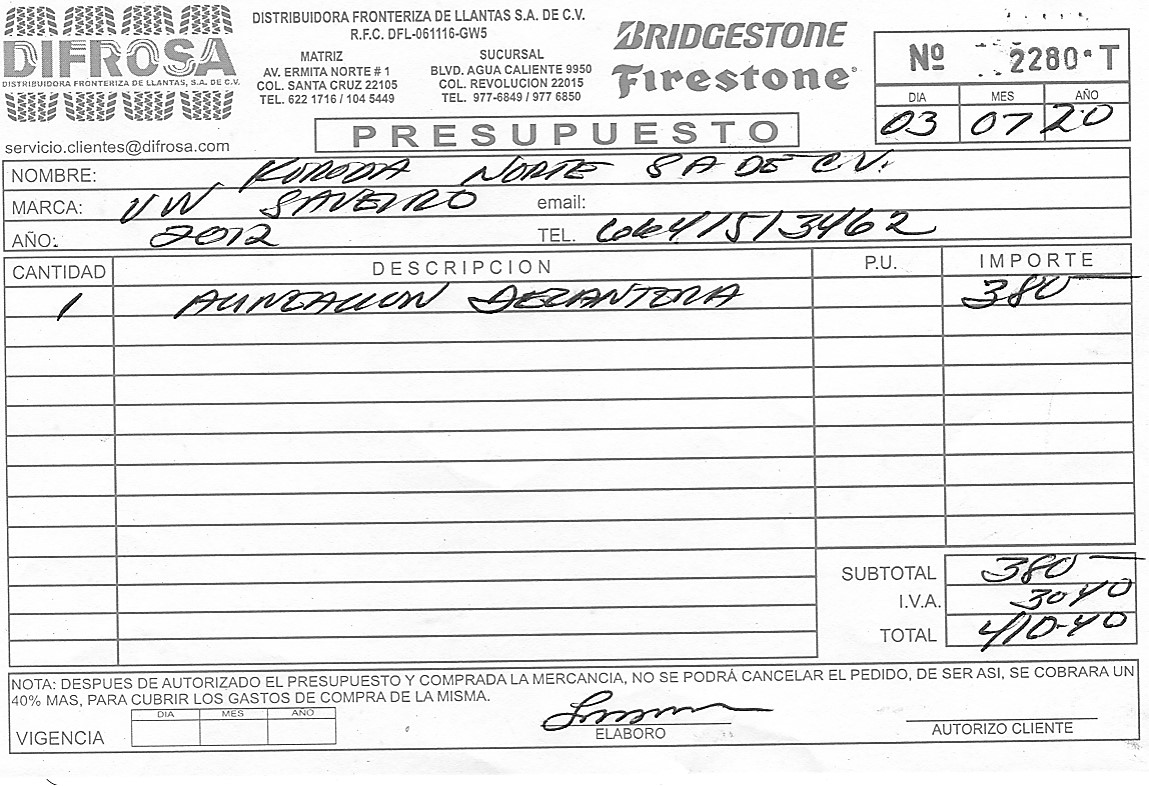 DIFROSA
DISTRIBUIDORA FRONTERIZA DE LLANTAS, S.A. DE C.V.
servicio.clientes@difrosa.com
DISTRIBUIDORA FRONTERIZA DE LLANTAS S.A. DE C.V.
R.F.C. DFL-061116-GW5
MATRIZ
AV. ERMITA NORTE # 1
COL. SANTA CRUZ 22105
TEL. 622 1716 / 104 5449
SUCURSAL
BLVD. AGUA CALIENTE 9950
COL. REVOLUCION 22015
TEL. 977-6849 / 977 6850
BRIDGESTONE
Firestone
Nº 2280-T
DIA MES AÑO
03 07 20
PRESUPUESTO
NOMBRE: KURODA NORTE SA DE C.V.
MARCA: VW SAVEIRO email:
AÑO: 2012 TEL. 6641513462
CANTIDAD DESCRIPCION P.U. IMPORTE
1 ALINEACION DELANTERA 380
SUBTOTAL 380
I.V.A. 30 40
TOTAL 410-40
NOTA: DESPUES DE AUTORIZADO EL PRESUPUESTO Y COMPRADA LA MERCANCIA, NO SE PODRÁ CANCELAR EL PEDIDO, DE SER ASI, SE COBRARA UN
40% MAS, PARA CUBRIR LOS GASTOS DE COMPRA DE LA MISMA.
DIA MES AÑO
VIGENCIA
ELABORO
AUTORIZO CLIENTE